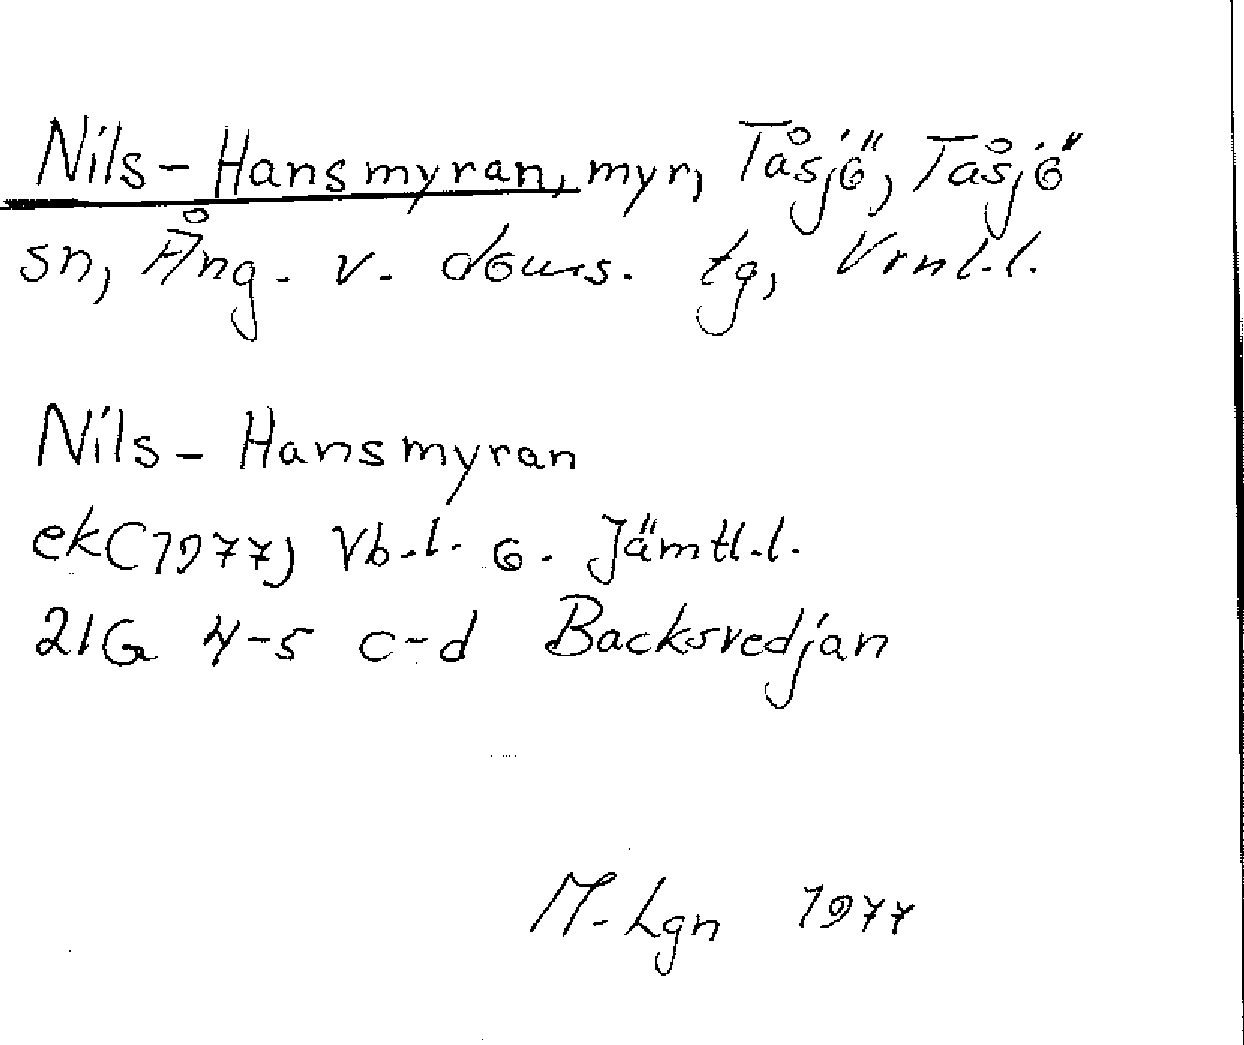 Nils-Hansmyran, myr, Tåsjö, Tåsjö
sn, Ång. v. doms. tg, Vrnl.l.
Nils-Hansmyran
ek(1977) Vb.l. o. Jämtl.l.
21G 4-5 c-d Backsvedjan
M. Lgn 1977